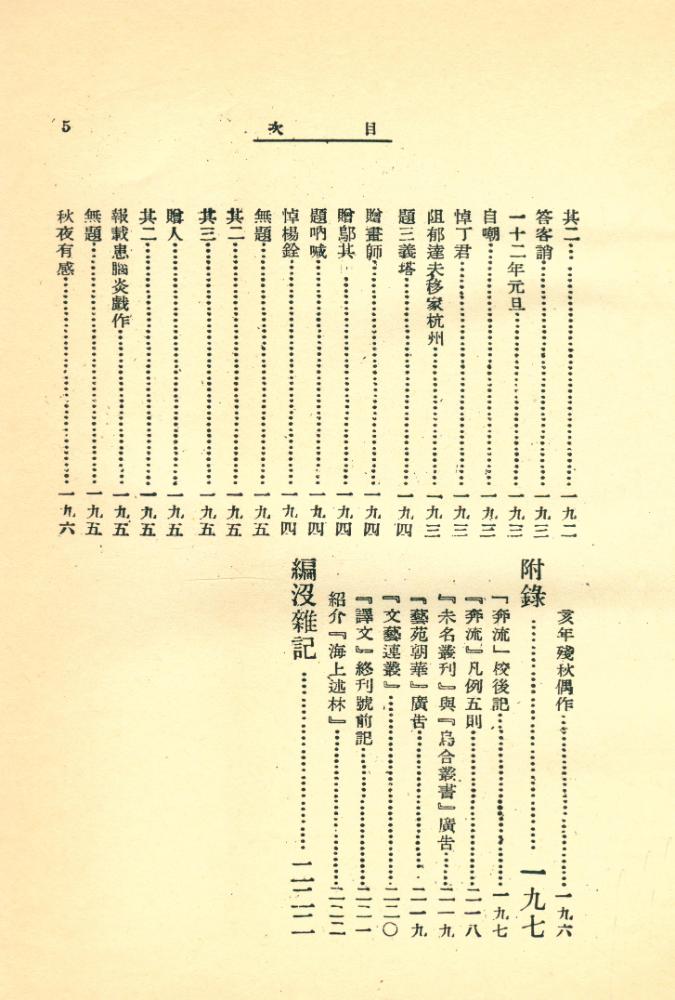 目次
5
其二……一九二
答客誚……一九三
一十二年元旦……一九三
自嘲……一九三
悼丁君……一九三
阻郁達夫移家杭州……一九三
題三義塔……一九四
贈畫師……一九四
贈鄔其……一九四
題吶喊……一九四
悼楊銓……一九四
無題……一九五
其二……一九五
其三……一九五
贈人……一九五
其二……一九五
報載患腦炎戲作……一九五
無題……一九五
秋夜有感……一九六
亥年殘秋偶作……一九六
附錄……一九七
「奔流」校後記……一九七
『奔流』凡例五則……二一八
『未名叢刊』與『烏合叢書』廣告……二一九
『藝苑朝華』廣告……二一九
『文藝連叢』……二二〇
『譯文』終刊號前記……二二一
紹介『海上述林』……二二二
編沒雜記……二二二